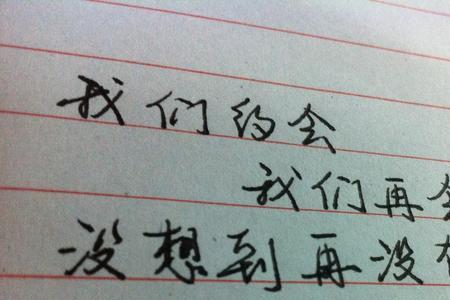 我们约会
我们再会
没想到再没有